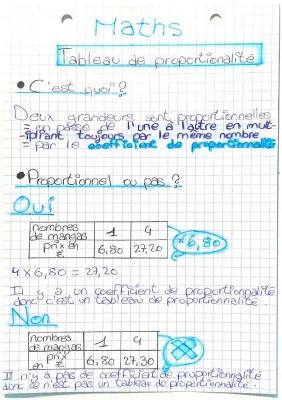 Maths
Tableau de proportionalité
• C'est quoi ?
Deux grandeurs sont proportionnelles
= on passe de l'une à l'autre en mult-
ipliant toujours par le même nombre
= par le coefficient de proportionnalité
• Proportionnel ou pas ?
Oui
nombres de mangas 1 4
Prix en € 6,80 27,20
×6,80
4 × 6,80 = 27,20
Il y a un coefficient de proportionnalité
donc c'est un tableau de proportionalité
Non
nombres de mangas 1 4
prix en € 6,80 27,30
Il n'y a pas de coefficient de proportionnalité
donc ce n'est pas un tableau de proportionnalité.